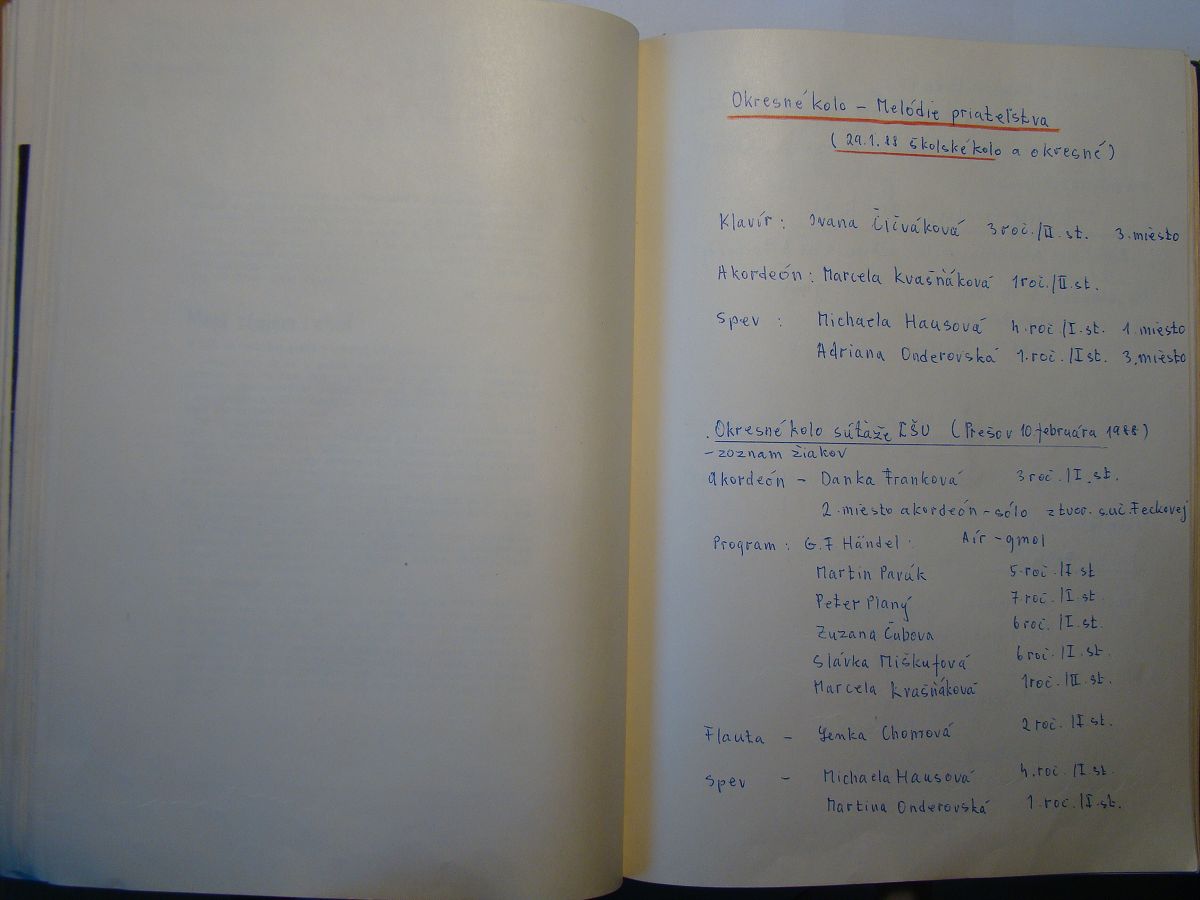 Okresné kolo – Melódie priateľstva
(29.1.88 školské kolo a okresné)
Klavír: Ivana Čičváková 3 roč./II. st. 3. miesto
Akordeón: Marcela Kvašňáková 1 roč./II. st.
Spev: Michaela Hausová 4. roč./I. st. 1 miesto
Adriana Onderovská 1. roč./I st. 3. miesto
Okresné kolo súťaže ĽŠU (Prešov 10 februára 1988)
– zoznam žiakov
Akordeón – Danka Franková 3 roč./I. st.
2. miesto akordeón – sólo z tvor. s. uč. Feckovej
Program: G. F Händel: Air – g mol
Martin Pavúk 5. roč./I. st
Peter Planý 7 roč./I. st.
Zuzana Čubova 6 roč./I. st.
Slávka Miškufová 6 roč./I. st.
Marcela Kvašňáková 1 roč./II. st.
Flauta – Lenka Chomová 2 roč./I st.
Spev – Michaela Hausová 4. roč./I st.
Martina Onderovská 1. roč./I. st.